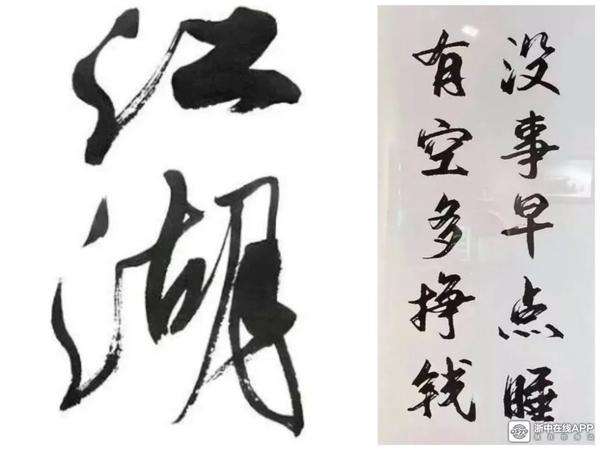 江湖
没事早点睡
有空多挣钱
浙中在线APP